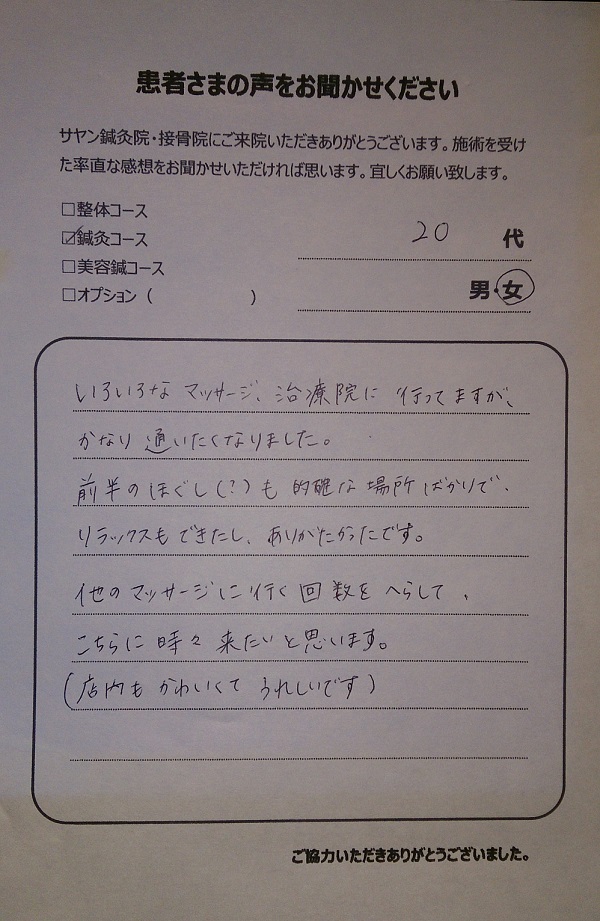 患者さまの声をお聞かせください
サヤン鍼灸院・接骨院にご来院いただきありがとうございます。施術を受け
た率直な感想をお聞かせいただければ思います。宜しくお願い致します。
□整体コース
☑鍼灸コース
20 代
□美容鍼コース
□オプション（　　　　　　）
男・女
いろいろな マッサージ、治療院に 行ってますが、
かなり 通いたくなりました。
前半の ほぐし(?)も 的確な 場所 ばかりで、
リラックスも できたし、ありがたかったです。
他の マッサージに 行く 回数を へらして、
こちらに 時々 来たいと 思います。
(店内も かわいくて うれしいです)
ご協力いただきありがとうございました。